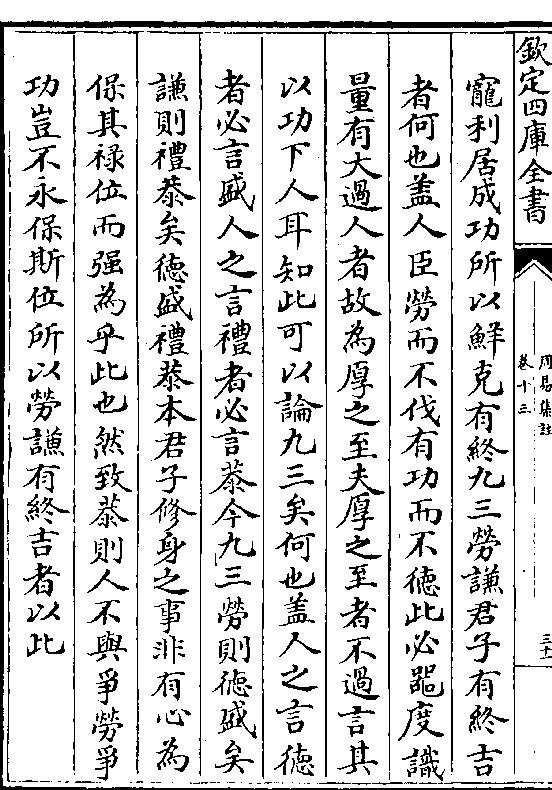 欽定四庫全書
周易集註
卷十三
三十
寵利居成功所以鮮克有終九三勞謙君子有終吉
者何也盖人臣勞而不伐有功而不德此必噐度識
量有大過人者故為厚之至夫厚之至者不過言其
以功下人耳知此可以論九三矣何也盖人之言德
者必言盛人之言禮者必言恭今九三勞則德盛矣
謙則禮恭矣德盛禮恭本君子修身之事非有心為
保其禄位而强為乎此也然致恭則人不與爭勞爭
功豈不永保斯位所以勞謙有終吉者以此